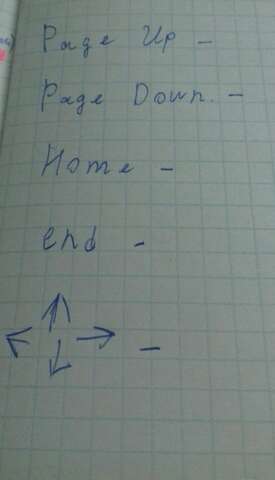 Page Up -
Page Down. -
Home -
end -
↑ ← → ↓ -